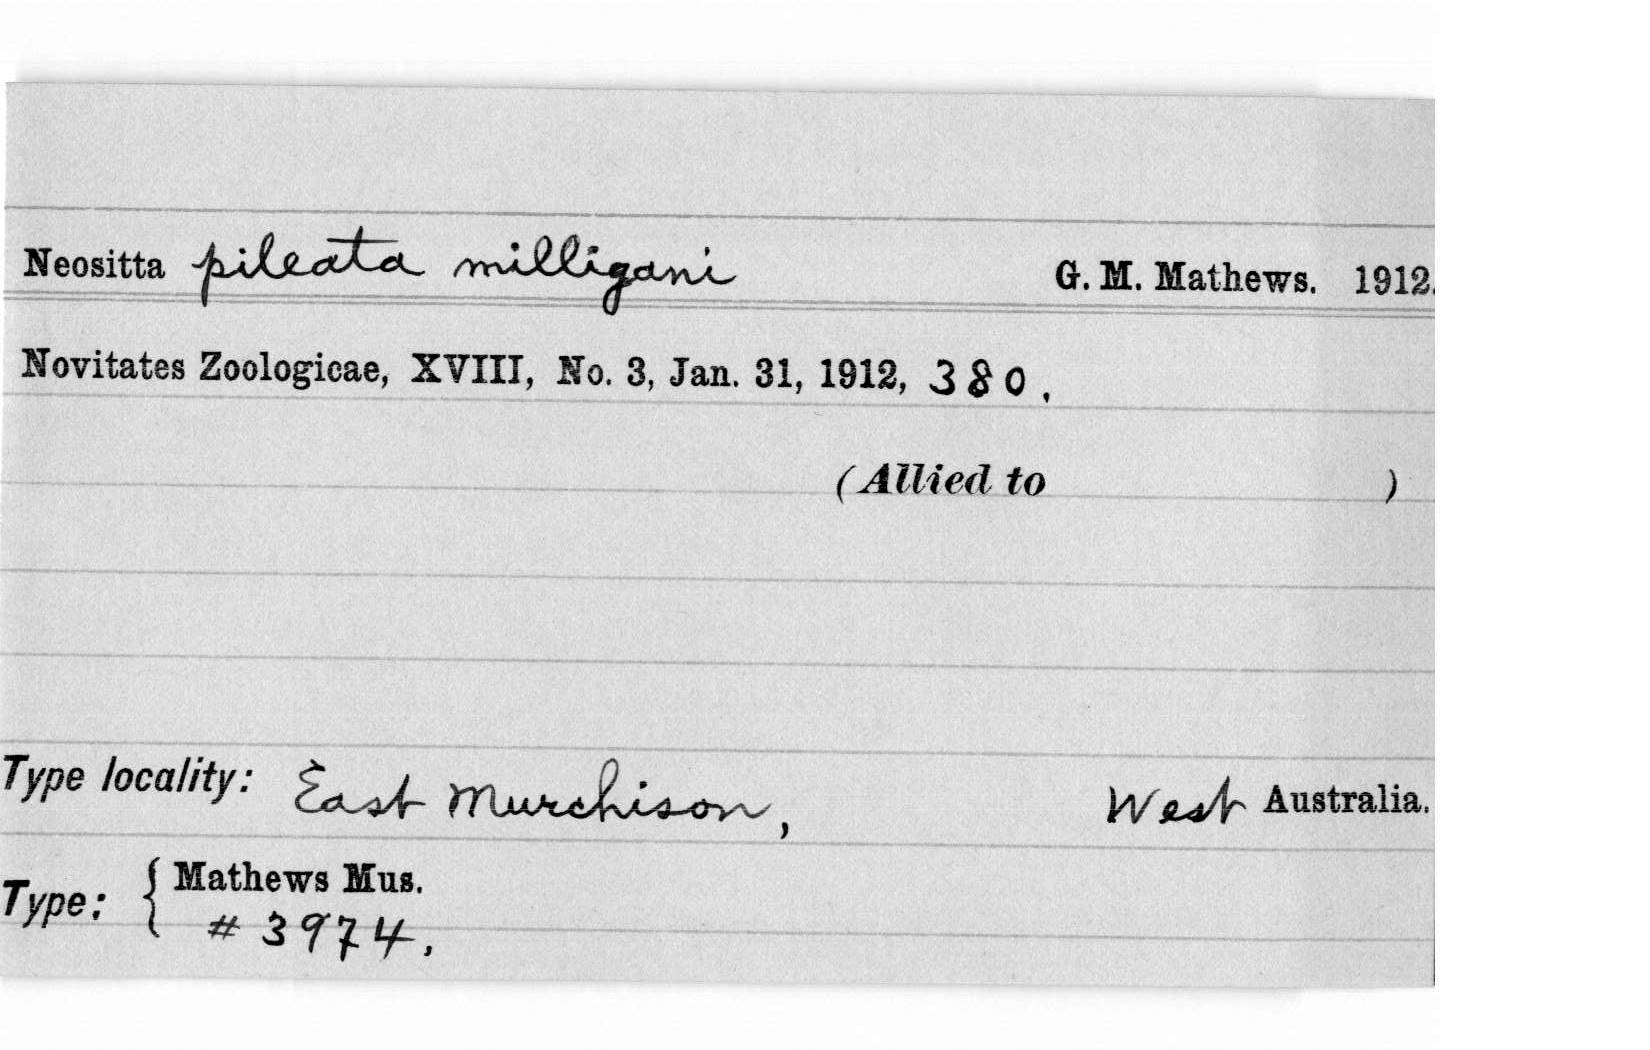 Neositta pileata milligani G. M. Mathews. 1912.
Novitates Zoologicae, XVIII, No. 3, Jan. 31, 1912, 380.
(Allied to )
Type locality: East Murchison, West Australia.
Type: { Mathews Mus.
# 3974.